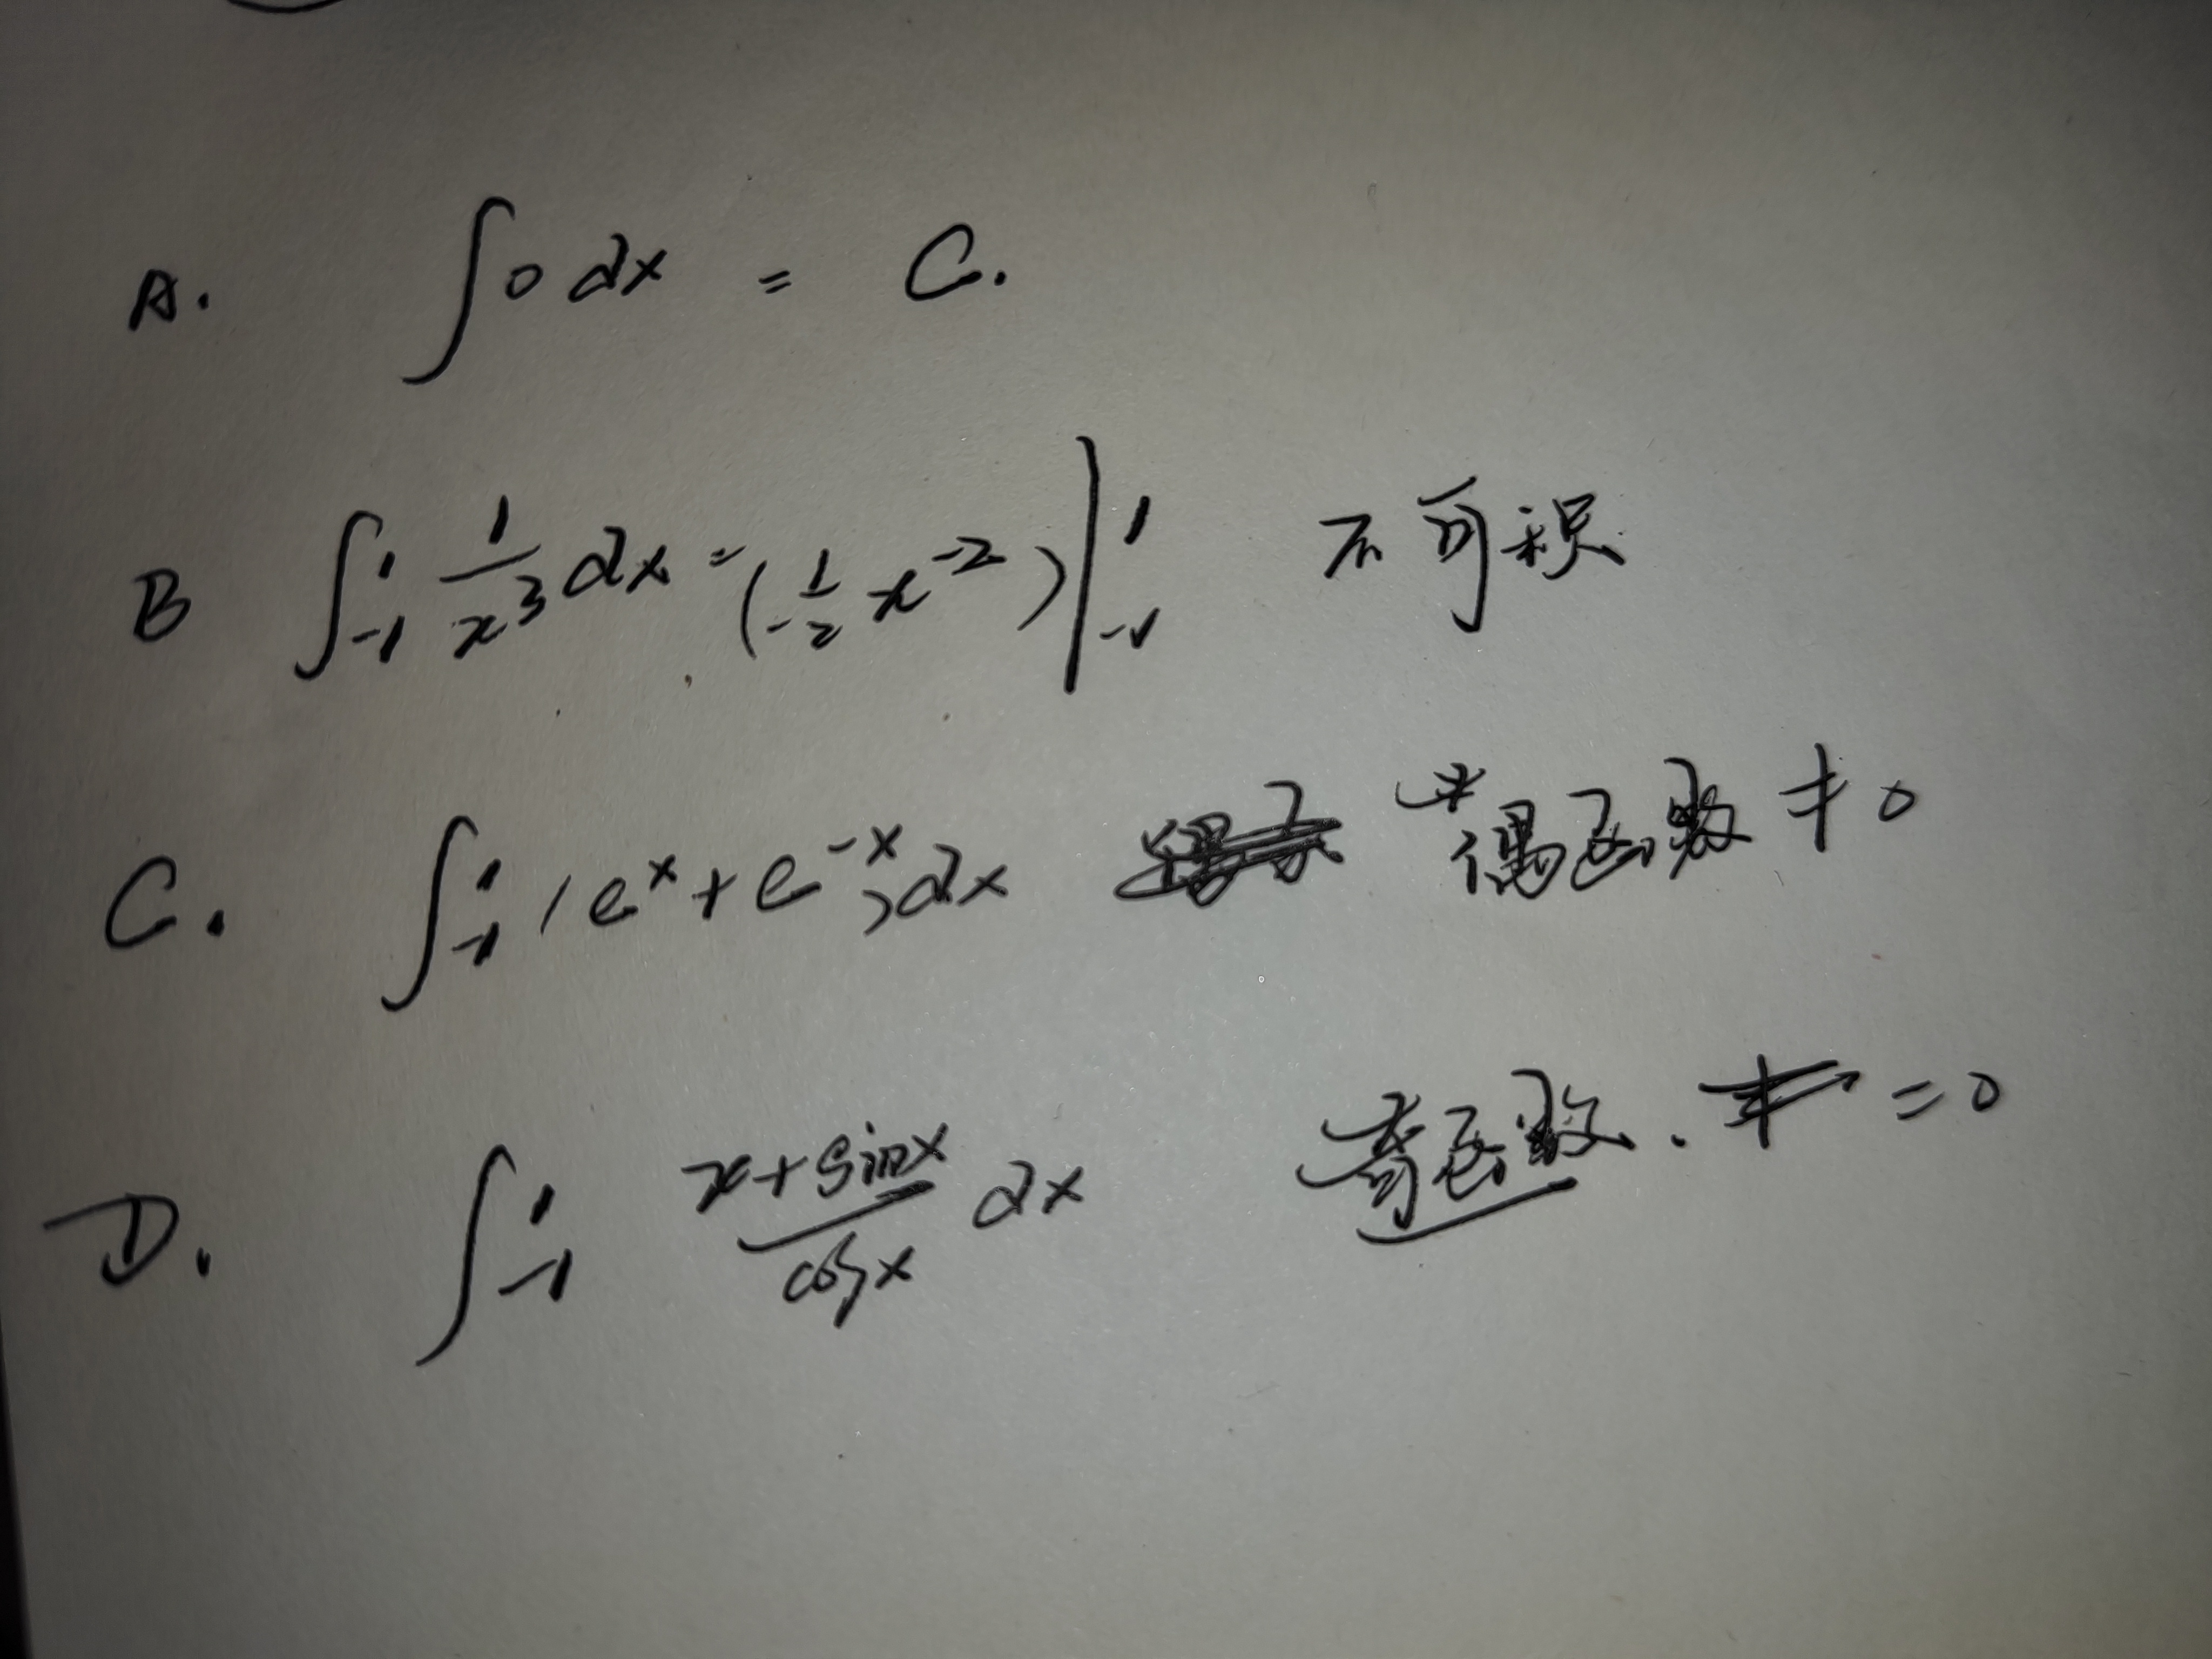 A. ∫0 dx = C.
B ∫₋₁¹ 1/x³ dx = (-1/2 x⁻²)|₋₁¹ 不可积
C. ∫₋₁¹ (eˣ + e⁻ˣ)dx 偶函数 ≠ 0
D. ∫₋₁¹ (x+sinx)/cosx dx 奇函数. = 0